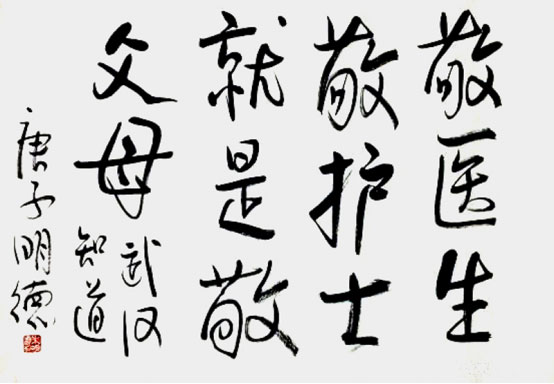 敬医生
敬护士
就是敬
父母
武汉
知道
庚子明德